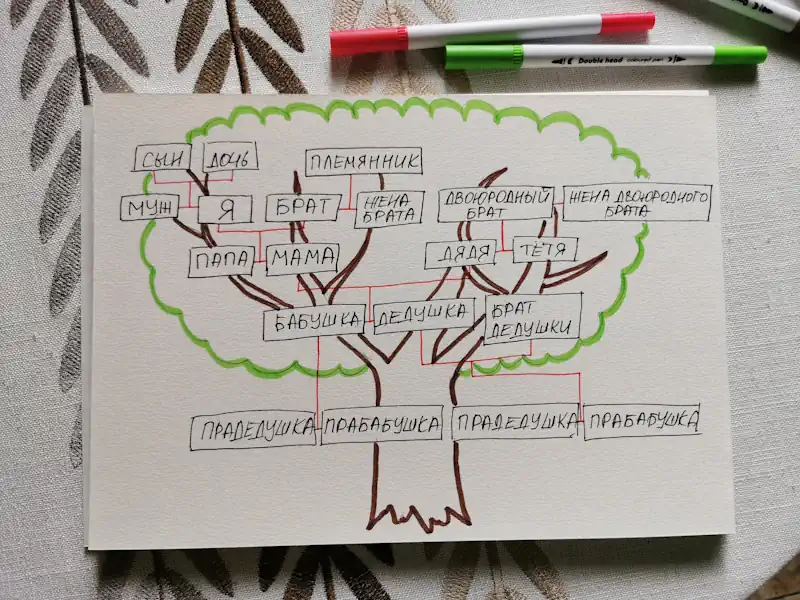 Double head coloured pen
СЫН ДОЧЬ ПЛЕМЯННИК
МУЖ Я БРАТ ЖЕНА БРАТА ДВОЮРОДНЫЙ БРАТ ЖЕНА ДВОЮРОДНОГО БРАТА
ПАПА МАМА ДЯДЯ ТЁТЯ
БАБУШКА ДЕДУШКА БРАТ ДЕДУШКИ
ПРАДЕДУШКА ПРАБАБУШКА ПРАДЕДУШКА ПРАБАБУШКА